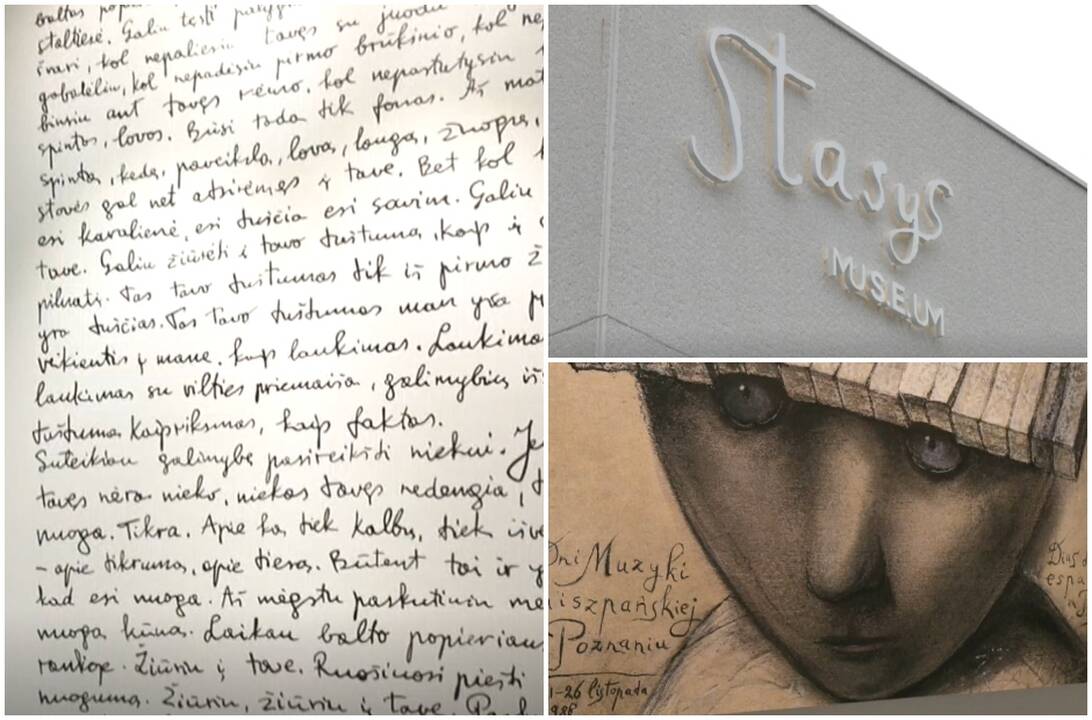 baltas
staltiesė. Galiu tęsti
kol nepaliesiu tavęs su juodu
gabalėliu, kol nepadėsiu pirmo brūkšnio, kol ne
ant tavęs rėmo, kol nepastatysiu
spintos, lovos. Būsi tada tik fonas. Aš mat
spintą, kėdę, paveikslą, lovą, langą, žmogų,
stovės gal net atsirėmęs į tave. Bet kol
esi karalienė, esi tuščia esi savim. Galiu
tave. Galiu žiūrėti į tavo tuštumą, kaip į
Tas tavo tuštumas tik iš pirmo ž
yra tuščias. Tas tavo tuštumas man yra
veikiantis į mane, kaip laukimas. Laukimas
laukimas su vilties priemaiša, galimybių iš
tuštuma kaip faktas.
Suteikiau galimybę pasireikšti niekui. Je
tavęs nėra nieko, niekas tavęs nedengia,
nuoga. Tikra. Apie ką tiek kalbu, tiek
– apie tikrumą, apie tiesą. Būtent tai ir y
kad esi nuoga. Aš mėgstu paskutiniu me
nuogą kūną. Laikau balto popieriaus
rankoje. Žiūriu į tave. Ruošiuosi piešti
nuogumą. Žiūriu, žiūriu į tave.
Stasys
MUSEUM
Dni Muzyki
iszpańskiej
Poznaniu
1-26 listopada
Dias
espa